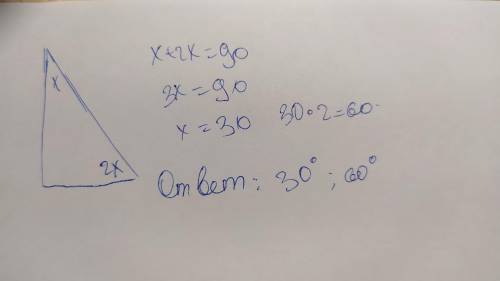 x+2x=90
x
3x=90
x=30 30•2=60.
2x
Ответ: 30°; 60°